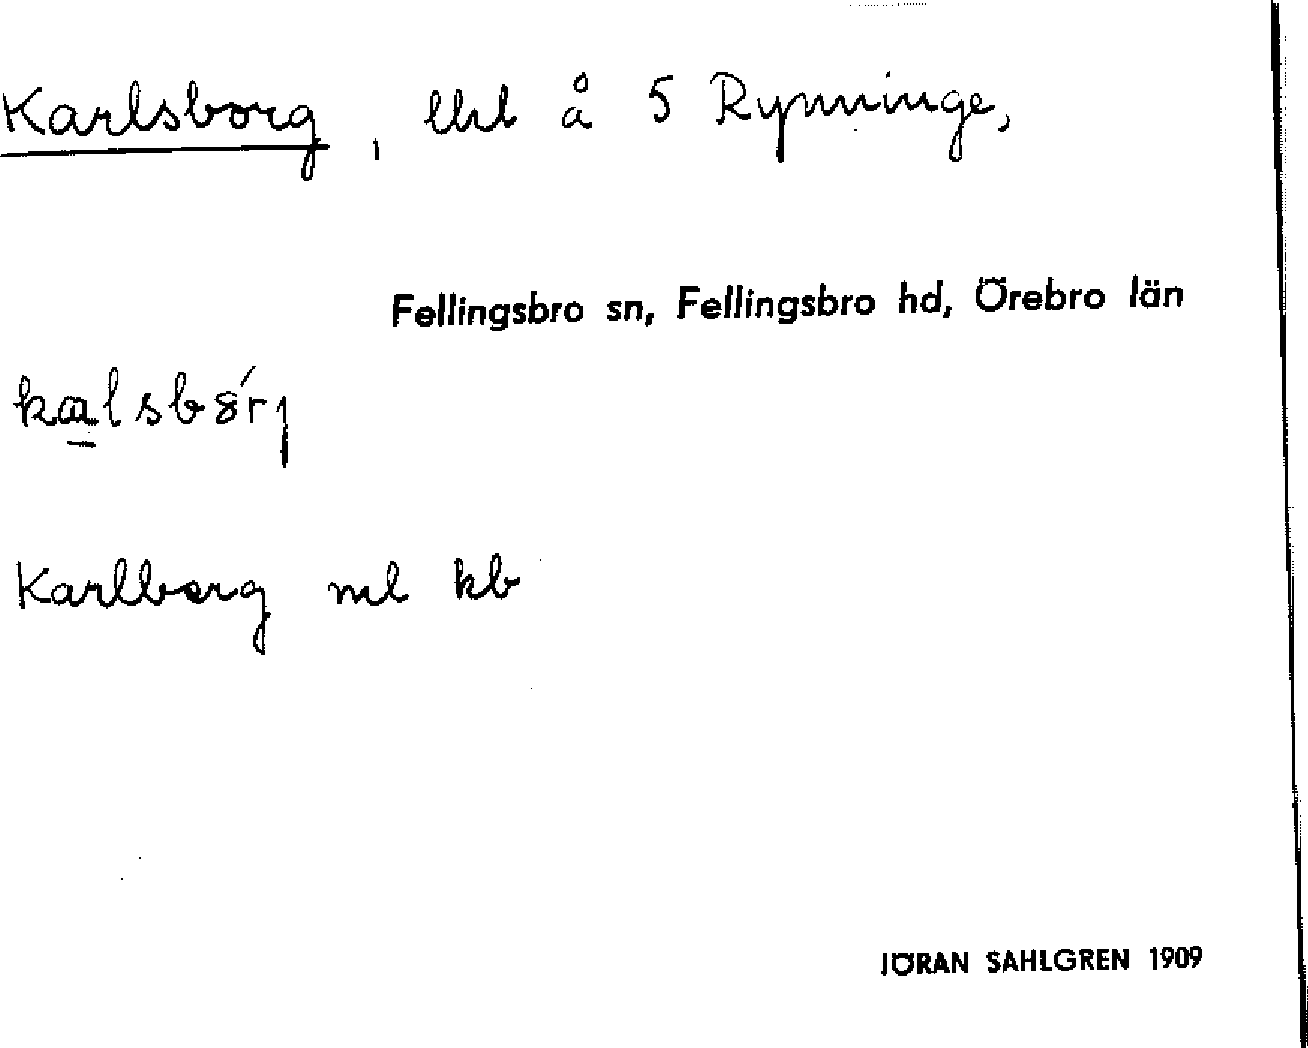 Karlsborg, lht å 5 Rynninge,
Fellingsbro sn, Fellingsbro hd, Örebro län
Karlberg ml kb
JÖRAN SAHLGREN 1909